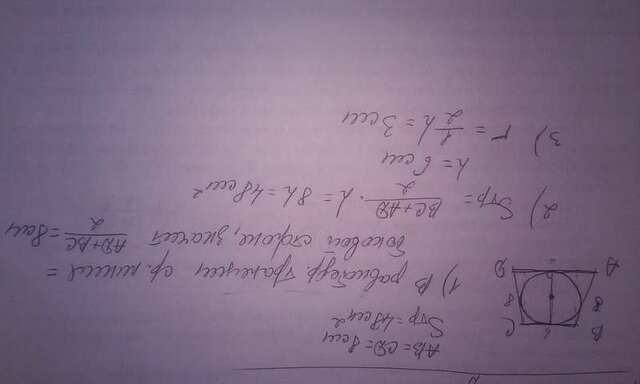 AB=CD=8см
Sтр=48см²
1) В равнобедр. трапеции ср. линия =
боковой стороне, значит (AD+BC)/2 = 8см
2) Sтр = (BC+AD)/2 · h = 8h = 48см²
h = 6см
3) r = 1/2 h = 3см
B
C
8
8
A
D